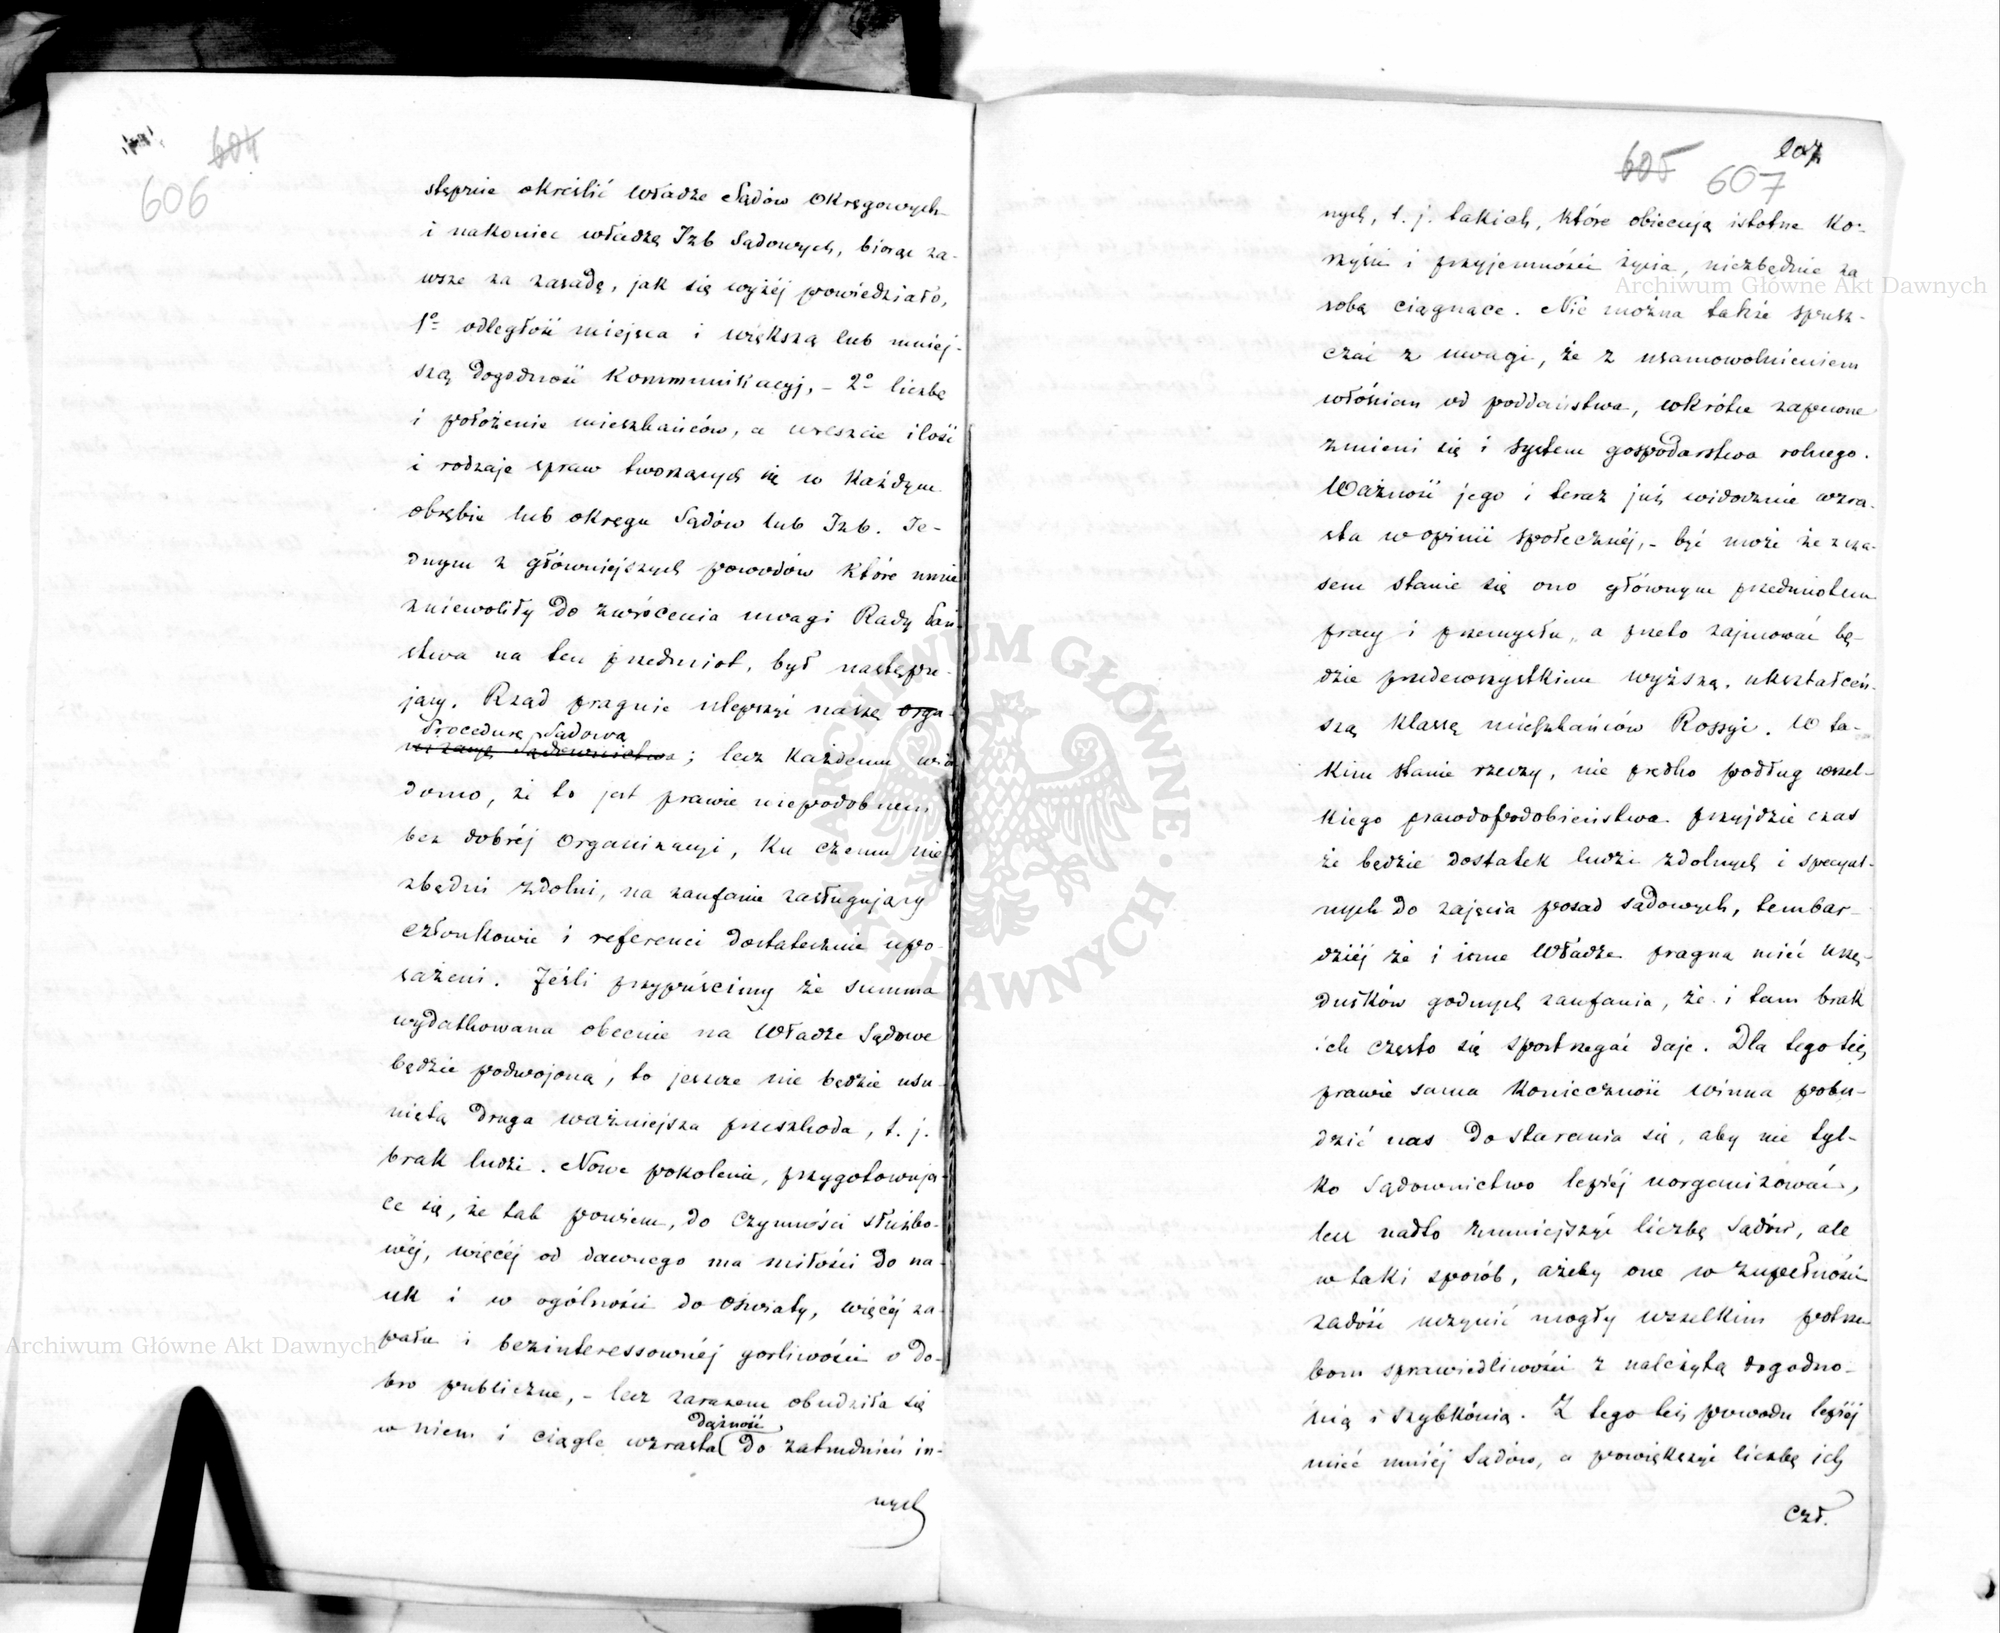 604
606
stępnie określić władze Sądów Okręgowych
i nakoniec władzę Izb Sądowych, biorąc za-
wsze za zasadę, jak się wyżéj powiedziało,
1º odległość miejsca i większą lub mniej-
szą dogodność kommunikacyj, – 2º liczbę
i położenie mieszkańców, a wreszcie ilość
i rodzaje spraw tworzących się w każdym
obrębie lub okręgu Sądów lub Izb. Je-
dnym z główniejszych powodów które mnie
zniewoliły do zwrócenia uwagi Rady Pań-
stwa na ten przedmiot, był następu-
jący. Rząd pragnie ulepszyć naszę orga-
Procedurę Sądową
nizacyę Sądownictwa; lecz każdemu wia
domo, że to jest prawie niepodobnem
bez dobréj organizacyi, ku czemu nie
zbędni zdolni, na zaufanie zasługujący
członkowie i referenci dostatecznie upo-
sażeni. Jeśli przypuścimy że summa
wydatkowana obecnie na Władze Sądowe
będzie podwojoną, to jeszcze nie będzie usu-
niętą druga ważniejsza przeszkoda, t. j.
brak ludzi. Nowe pokolenie, przygotowują-
ce się, że tak powiem, do czynności służbo-
wéj, więcéj od dawnego ma miłości do na-
uk i w ogólności do oświaty, więcéj za-
pału i bezinteressownéj gorliwości o do-
bro publiczne, – lecz zarazem obudziła się
dążność
w niem i ciągle wzrasta do zatrudnień in-
nych
605
607
nych, t. j. takich, które obiecują istotne ko-
rzyści i przyjemności życia, niezbędnie za
sobą ciągnące. Nie można także spusz-
czać z uwagi, że z usamowolnieniem
włościan od poddaństwa, wkrótce zapewne
zmieni się i system gospodarstwa rolnego.
Ważność jego i teraz już widocznie wzra-
sta w opinii społecznéj, – być może że z cza-
sem stanie się ono głównym przedmiotem
pracy i przemysłu, a przeto zajmować bę-
dzie przedewszystkiem wyższą, ukształceń-
szą klassę mieszkańców Rossyi. W ta-
kim stanie rzeczy, nie prędko podług wszel-
kiego prawdopodobieństwa przyjdzie czas
że będzie dostatek ludzi zdolnych i specyal-
nych do zajęcia posad sądowych, tembar-
dziéj że i inne Władze pragną mieć urzę-
dników godnych zaufania, że i tam brak
ich często się spostrzegać daje. Dla tego też,
prawie sama konieczność winna pobu-
dzić nas do starania się, aby nie tyl-
ko Sądownictwo lepiéj uorganizować,
lecz nadto zmniejszyć liczbę Sądów, ale
w taki sposób, ażeby one w zupełności
zadość uczynić mogły wszelkim potrze
bom sprawiedliwości z należytą dogodno-
ścią i szybkością. Z tego też powodu lepiéj
mieć mniéj Sądów, a powiększyć liczbę ich
czł.
Archiwum Główne Akt Dawnych
Archiwum Główne Akt Dawnych
ARCHIWUM GŁÓWNE AKT DAWNYCH